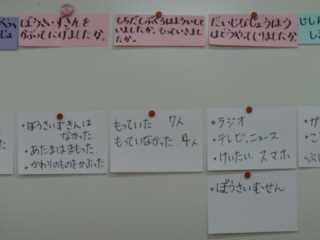 ぼうさいずきんを
かぶってにげましたか。
もちだしぶくろはよういして
いましたか。もっていきました
か。
だいじなじょうほうは
どうやってしりましたか。
じしん
・ぼうさいずきんは
なかった
・あたまはまもった
・かわりのものをかぶった
もっていた 7人
もっていなかった 4人
・ラジオ
・テレビ、ニュース
・けいたい、スマホ
・ぼうさいむせん